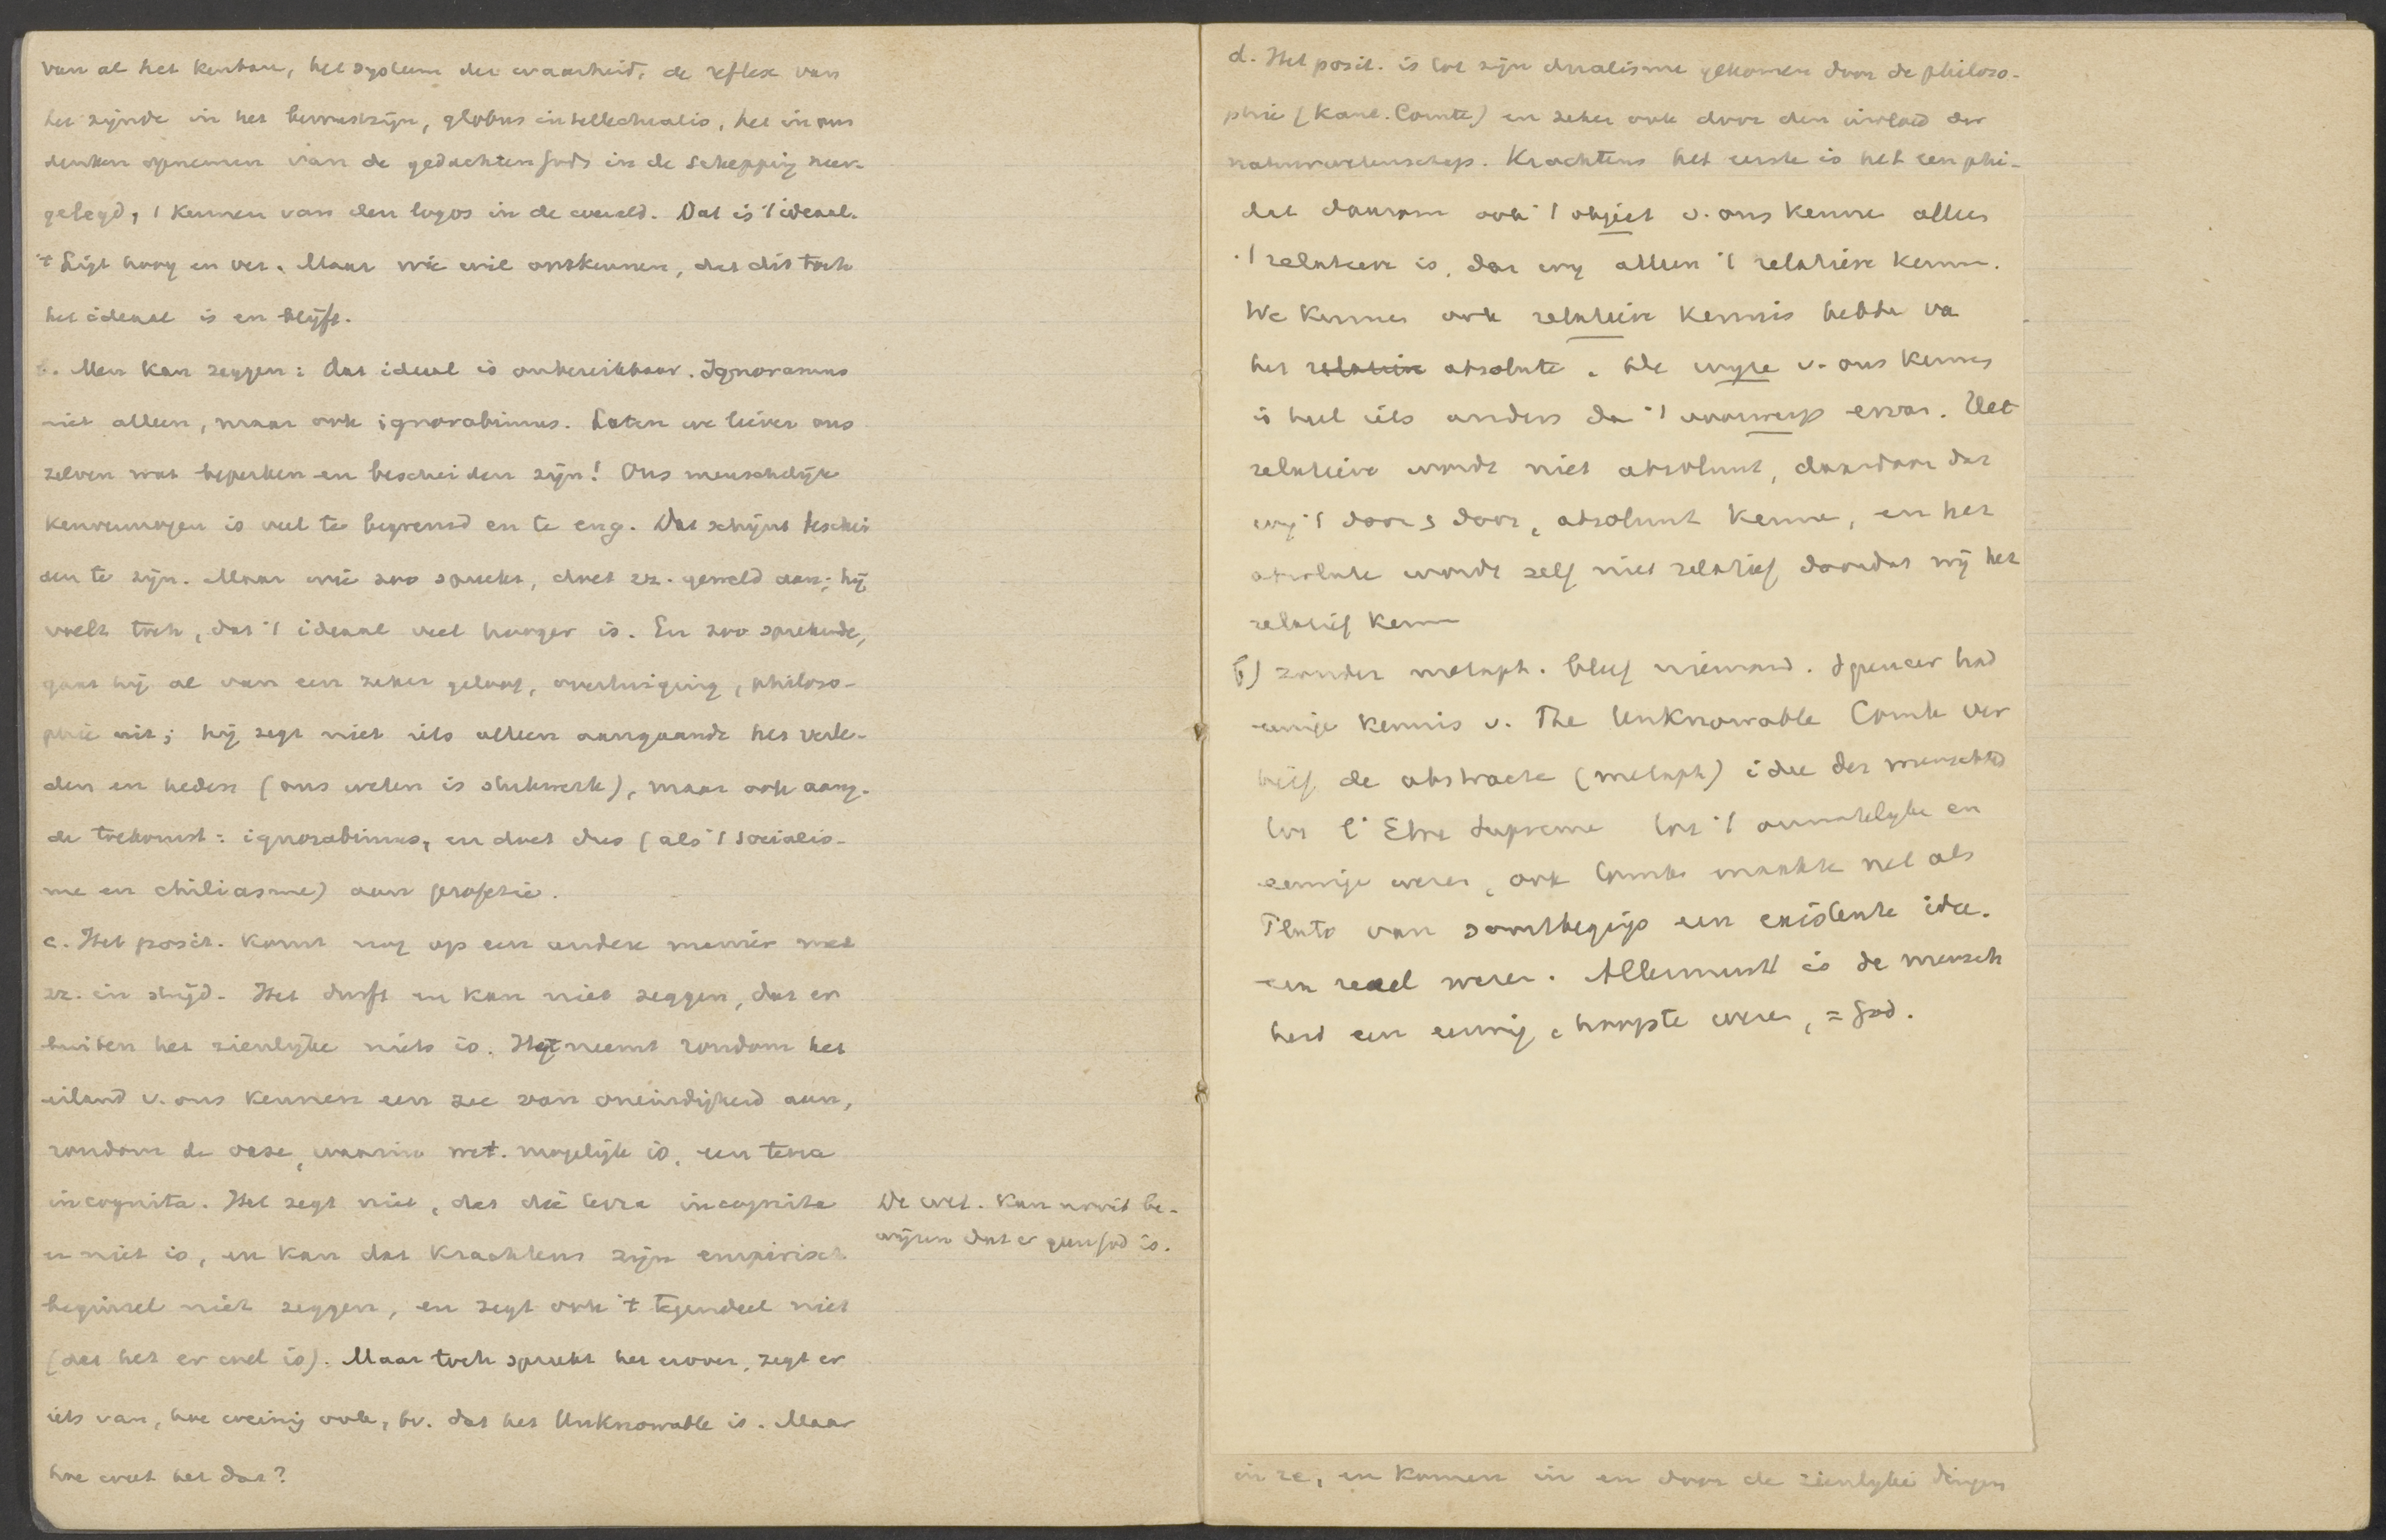 van al het kenbare, het systeem der waarheid, de reflex van
het zijnde in het bewustzijn, globus intellectualis, het in ons
denken opnemen van de gedachten Gods in de schepping neer-
gelegd, 't kennen van den logos in de wereld. Dat is 't ideaal.
't Ligt hoog en ver. Maar wie wil ontkennen, dat dit toch
het ideaal is en blijft.
b. Men kan zeggen: dat ideaal is onbereikbaar. Ignoramus
niet alleen, maar ook ignorabimus. Laten we liever ons
zelven wat beperken en bescheiden zijn! Ons menschelijk
kenvermogen is veel te begrensd en te eng. Dat schijnt beschei
den te zijn. Maar wie zoo spreekt, doet zz. geweld aan; hij
voelt toch, dat 't ideaal veel hooger is. En zoo sprekende,
gaat hij al van een zeker geloof, overtuiging, philoso-
phie uit; hij zegt niet iets alleen aangaande het verle-
den en heden (ons weten is stukwerk), maar ook aang.
de toekomst: ignorabimus, en doet dus (als 't socialis-
me en chiliasme) aan profezie.
c. Het posit. komt nog op een andere manier met
zz. in strijd. Het durft en kan niet zeggen, dat er
buiten het zienlijke niets is. Het neemt rondom het
eiland v. ons kennen een zee van oneindigheid aan,
rondom de oase, waarin wet. mogelijk is, een terra
incognita. Het zegt niet, dat die terra incognita
er niet is, en kan dat krachtens zijn empirisch
beginsel niet zeggen, en zegt ook 't tegendeel niet
(dat het er wel is). Maar toch spreekt het erover, zegt er
iets van, hoe weinig ook, bv. dat het Unknowable is. Maar
hoe weet het dat?
De wet. kan nooit be-
wijzen dat er geen God is.
d. Het posit. is tot zijn dualisme gekomen door de philoso-
phie (Kant. Comte) en zeker ook door den invloed der
natuurwetenschap. Krachtens het eerste is het een phi-
dat daarom ook 't object v. ons kennen alleen
't relatieve is, dat wij alleen 't relatieve kennen.
We kunnen ook relatieve kennis hebben va
het relatieve absolute. De wijze v. ons kennen
is heel iets anders dan 't voorwerp ervan. Het
relatieve wordt niet absoluut, daardoor dat
wij 't door & door, absoluut kennen, en het
absolute wordt zelf niet relatief doordat wij het
relatief kennen
b) zonder metaph. bleef niemand. Spencer had
eenige kennis v. The Unknowable Comte ver
hief de abstracte (metaph) idee der menschhd
tot l'Etre Supreme tot 't onmiddelyke en
eenige wezen, ook Comte maakte net als
Plato van soortbegrip een existente idee.
een reëel wezen. Allerminst is de mensch
heid een eenig, hoogste wezen, = God.
in ze, en komen in en door de zienlyke dingen